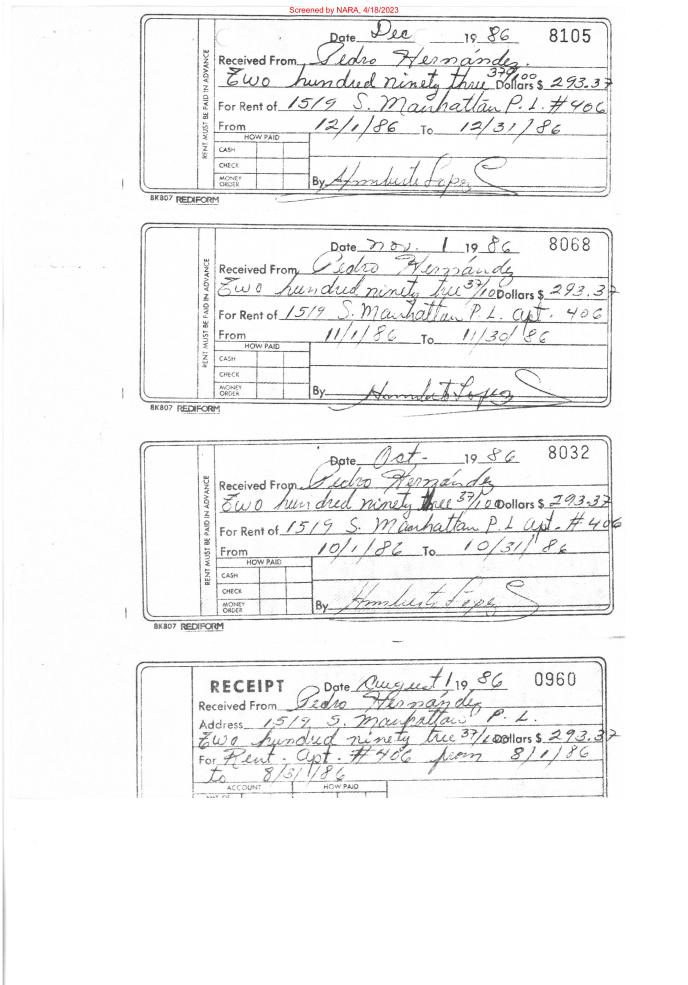 Screened by NARA, 4/18/2023
Date Dec 19 86 8105
RENT MUST BE PAID IN ADVANCE
Received From Pedro Hernández
Two hundred ninety three 37/100 Dollars $ 293.37
For Rent of 1519 S. Manhattan P.L. #406
From 12/1/86 To 12/31/86
HOW PAID
CASH
CHECK
MONEY ORDER
By Humberto Lopez
8K807 REDIFORM
Date Nov. 1 19 86 8068
RENT MUST BE PAID IN ADVANCE
Received From Pedro Hernández
Two hundred ninety tree 37/100 Dollars $ 293.37
For Rent of 1519 S. Manhattan P.L. apt. 406
From 11/1/86 To 11/30/86
HOW PAID
CASH
CHECK
MONEY ORDER
By Humberto Lopez
8K807 REDIFORM
Date Oct- 19 86 8032
RENT MUST BE PAID IN ADVANCE
Received From Pedro Hernández
Two hundred ninety three 37/100 Dollars $ 293.37
For Rent of 1519 S. Manhattan P L apt. #406
From 10/1/86 To 10/31/86
HOW PAID
CASH
CHECK
MONEY ORDER
By Humberto Lopez
8K807 REDIFORM
RECEIPT Date August 1 19 86 0960
Received From Pedro Hernández
Address 1519 S. Manhattan P.L.
Two hundred ninety tree 37/100 Dollars $ 293.37
For Rent. Apt. #406 from 8/1/86
to 8/31/86
ACCOUNT HOW PAID